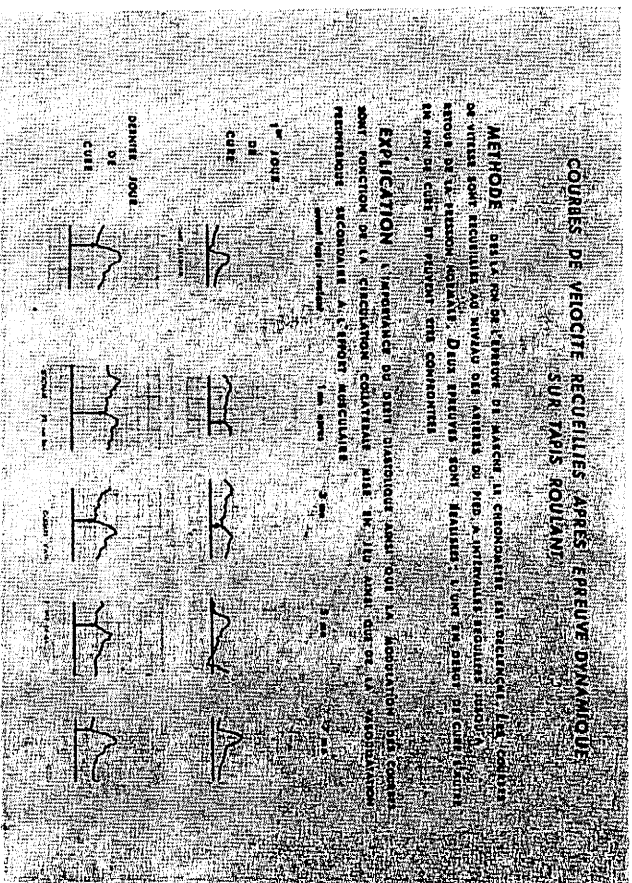 COURBES DE VELOCITE RECUEILLIES APRES EPREUVE DYNAMIQUE
SUR TAPIS ROULANT
METHODE DES LA FIN DE L'EPREUVE DE MARCHE LE CHRONOMETRE EST DECLENCHE. LES COURBES
DE VITESSE SONT RECUEILLIES AU NIVEAU DES ARTERES DU PIED A INTERVALLES REGULIERS JUSQU'A
RETOUR DE LA PRESSION NORMALE. DEUX EPREUVES SONT REALISEES, L'UNE EN DEBUT DE CURE L'AUTRE
EN FIN DE CURE ET PEUVENT ETRE CONFRONTEES
EXPLICATION L'IMPORTANCE DU DEBIT DIASTOLIQUE AINSI QUE LA MODULATION DES COURBES
SONT FONCTION DE LA CIRCULATION COLLATERALE MISE EN JEU AINSI QUE DE LA VASODILATATION
PERIPHERIQUE SECONDAIRE A L'EFFORT MUSCULAIRE
1 mn apres
3 mn
5 mn
1er JOUR
DE
CURE
DERNIER JOUR
DE
CURE